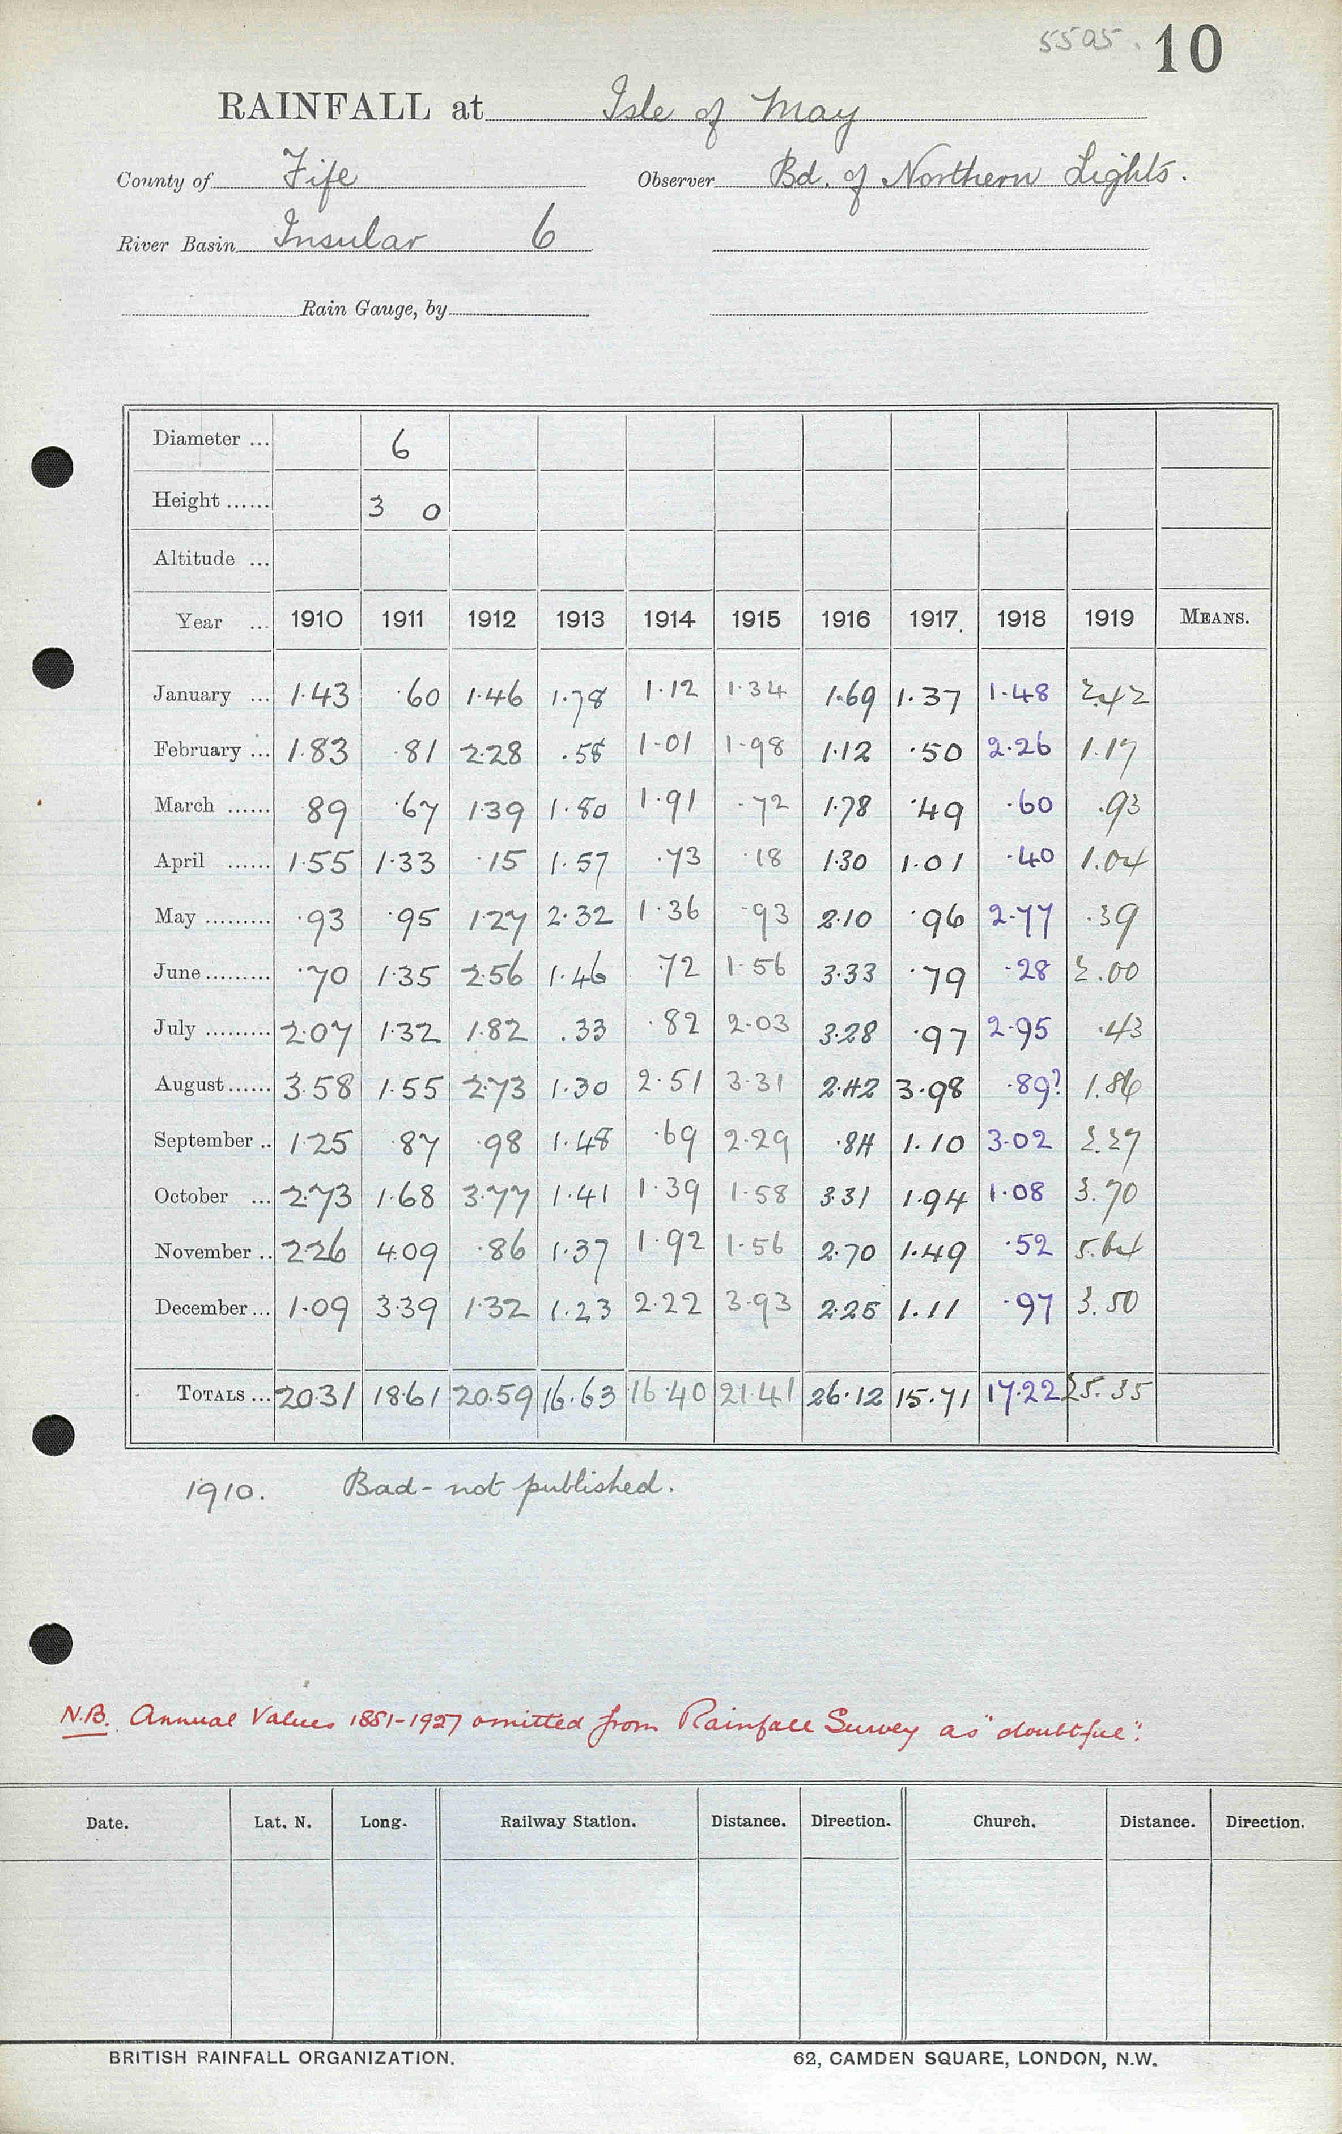 5505. 10
RAINFALL at Isle of May
County of Fife Observer Bd. of Northern Lights.
River Basin Insular 6
Rain Gauge, by
Diameter ... 6
Height ...... 3 0
Altitude ...
Year ... 1910 1911 1912 1913 1914 1915 1916 1917 1918 1919 MEANS.
January ... 1.43 .60 1.46 1.78 1.12 1.34 1.69 1.37 1.48 2.42
February ... 1.83 .81 2.28 .58 1.01 1.98 1.12 .50 2.26 1.17
March ...... .89 .67 1.39 1.80 1.91 .72 1.78 .49 .60 .93
April ...... 1.55 1.33 .15 1.57 .73 .18 1.30 1.01 .40 1.04
May ......... .93 .95 1.27 2.32 1.36 .93 2.10 .96 2.77 .39
June ......... .70 1.35 2.56 1.46 .72 1.56 3.33 .79 .28 2.00
July ......... 2.07 1.32 1.82 .33 .82 2.03 3.28 .97 2.95 .43
August ...... 3.58 1.55 2.73 1.30 2.51 3.31 2.42 3.98 .89? 1.86
September .. 1.25 .87 .98 1.48 .69 2.29 .84 1.10 3.02 2.27
October ... 2.73 1.68 3.77 1.41 1.39 1.58 3.31 1.94 1.08 3.70
November .. 2.26 4.09 .86 1.37 1.92 1.56 2.70 1.49 .52 5.64
December ... 1.09 3.39 1.32 1.23 2.22 3.93 2.25 1.11 .97 3.50
TOTALS ... 20.31 18.61 20.59 16.63 16.40 21.41 26.12 15.71 17.22 25.35
1910. Bad - not published.
N.B. Annual Values 1881-1927 omitted from Rainfall Survey as "doubtful".
Date. Lat. N. Long. Railway Station. Distance. Direction. Church. Distance. Direction.
BRITISH RAINFALL ORGANIZATION. 62, CAMDEN SQUARE, LONDON, N.W.